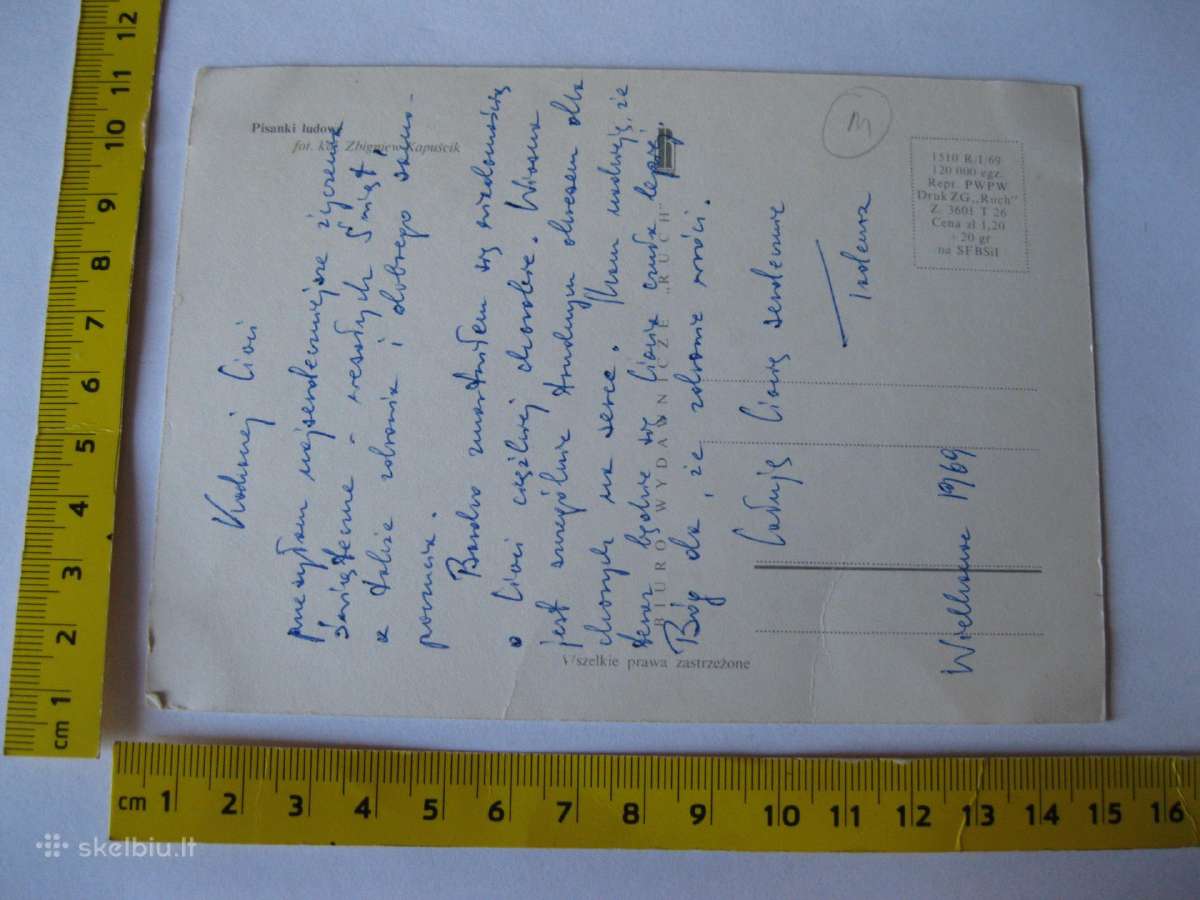 Pisanki ludowe
fot. kol. Zbigniew Kapuścik
M
1510 R/I/69
120 000 egz.
Repr. PWPW
Druk ZG „Ruch"
Z. 3601 T 26
Cena zł 1,20
+ 20 gr
na SFBSiI
BIURO WYDAWNICZE „RUCH"
Wszelkie prawa zastrzeżone
Kochanej Cioci
przesyłam najserdeczniejsze życzenia
świąteczne - wesołych Świąt,
a także zdrowia i dobrego samo-
poczucia.
Bardzo zmartwiłem się wiadomością
o Cioci ciężkiej chorobie. Wiosna
jest szczególnie trudnym okresem dla
chorych na serce. Mam nadzieję, że
teraz będzie się Ciocia czuła lepiej.
Bóg da, że zdrowie wróci.
Całuję Ciocię serdecznie
Wielkanoc 1969
cm 1 2 3 4 5 6 7 8 9 10 11 12
cm 1 2 3 4 5 6 7 8 9 10 11 12 13 14 15 16
skelbiu.lt